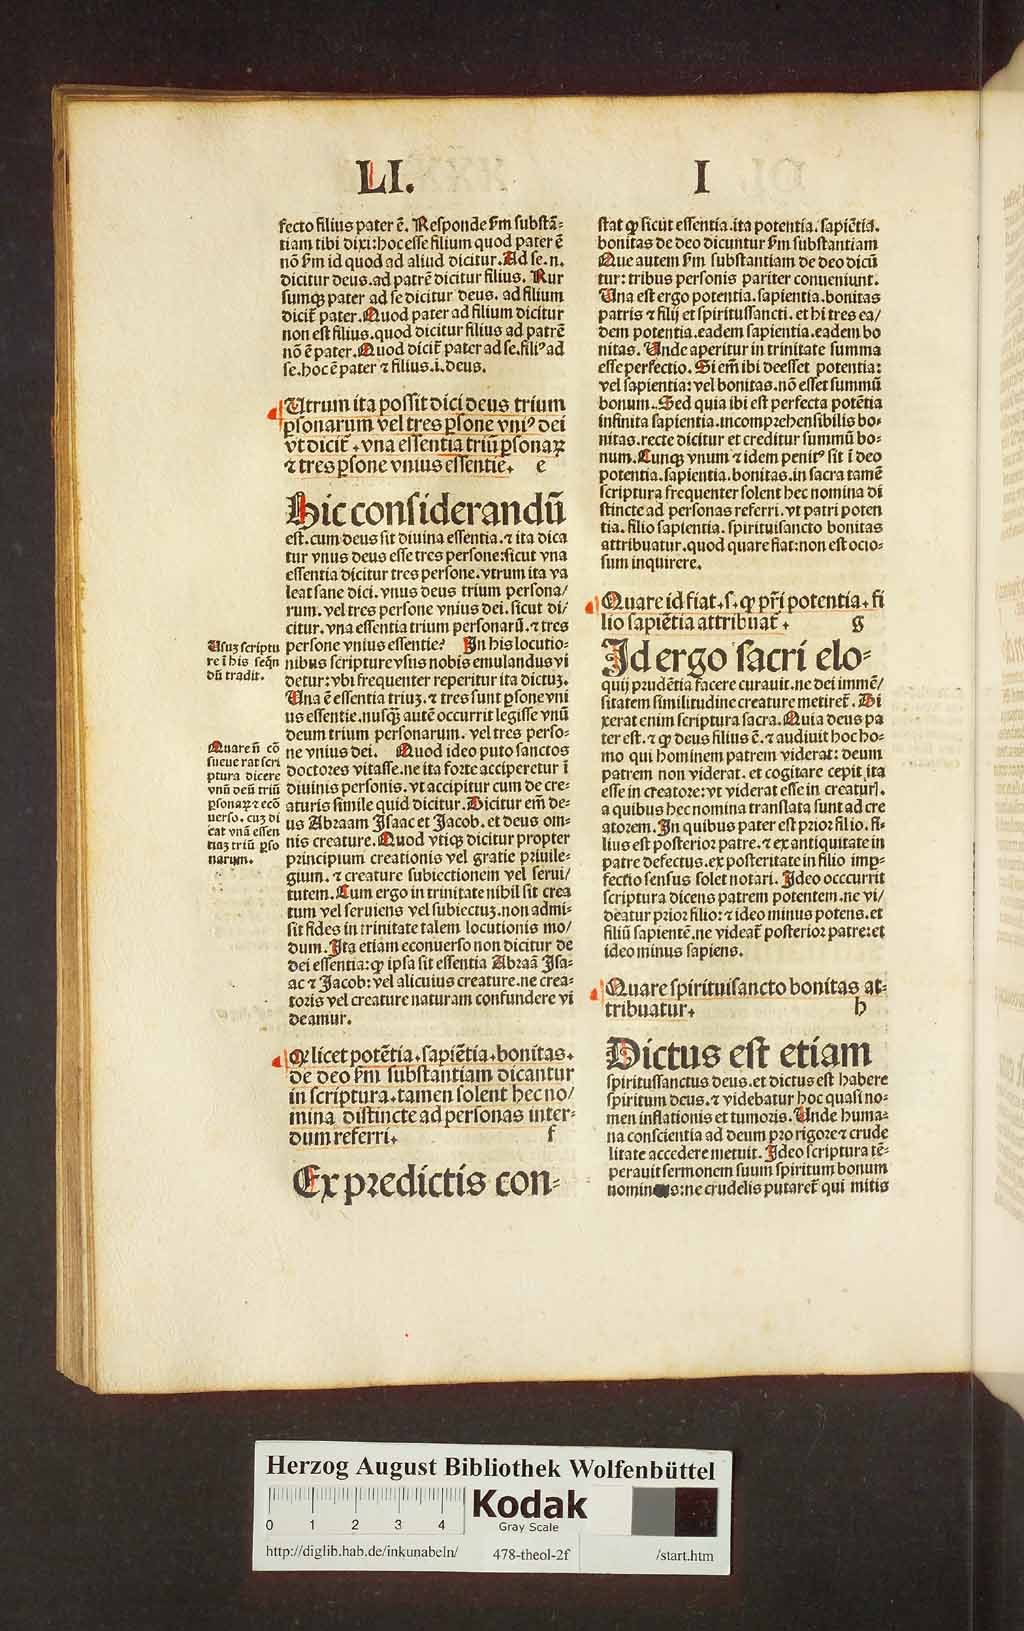 LI. I
fecto filius pater ē. Responde ẜm substā-
tiam tibi dixi: hoc esse filium quod pater ē
nō ẜm id quod ad aliud dicitur. Ad se.n.
dicitur deus. ad patrē dicitur filius. Rur
sumqꝫ pater ad se dicitur deus. ad filium
dicit̄ pater. Quod pater ad filium dicitur
non est filius. quod dicitur filius ad patrē
nō ē pater. Quod dicit̄ pater ad se. filiꝰ ad
se. hoc ē pater ⁊ filius .i. deus.
Utrum ita possit dici deus trium
ꝑsonarum vel tres ꝑsone vniꝰ dei
vt dicit̄. vna essentia triū ꝑsonaꝝ
⁊ tres ꝑsone vnius essentie. e
Hic considerandū
est. cum deus sit diuina essentia. ⁊ ita dica
tur vnus deus esse tres persone: sicut vna
essentia dicitur tres persone. vtrum ita va
leat sane dici. vnus deus trium persona/
rum. vel tres persone vnius dei. sicut di/
citur. vna essentia trium personarū. ⁊ tres
persone vnius essentie? In his locutio-
nibus scripture vsus nobis emulandus vi
detur: vbi frequenter reperitur ita dictuꝫ.
Una ē essentia triuꝫ. ⁊ tres sunt ꝑsone vni
us essentie. nusqꝫ autē occurrit legisse vnū
deum trium personarum. vel tres perso-
ne vnius dei. Quod ideo puto sanctos
doctores vitasse. ne ita forte acciperetur ī
diuinis personis. vt accipitur cum de cre-
aturis simile quid dicitur. Dicitur em̄ de-
us Abraam Isaac et Jacob. et deus om-
nis creature. Quod vtiqꝫ dicitur propter
principium creationis vel gratie priuile-
gium. ⁊ creature subiectionem vel serui/
tutem. Cum ergo in trinitate nihil sit crea
tum vel seruiens vel subiectuꝫ. non admi-
sit fides in trinitate talem locutionis mo/
dum. Ita etiam econuerso non dicitur de
dei essentia: qꝙ ipsa sit essentia Abraā Isa-
ac ⁊ Jacob: vel alicuius creature. ne crea-
toris vel creature naturam confundere vi
deamur.
Qꝙ licet potētia. sapiētia. bonitas.
de deo ẜm substantiam dicantur
in scriptura. tamen solent hec no/
mina distincte ad personas inter-
dum referri. f
Ex predictis con-
Usuꝫ scriptu
re ī his seqn̄
dū tradit.
Quare n̄ cō
sueuerat scri
ptura dicere
vnū deū triū
ꝑsonaꝝ ⁊ ecō
uerso. cuꝫ di
cat vnā essen
tiaꝫ triū ꝑso
narum.
stat qꝙ sicut essentia. ita potentia. sapiētia.
bonitas de deo dicuntur ẜm substantiam
Que autem ẜm substantiam de deo dicū
tur: tribus personis pariter conueniunt.
Una est ergo potentia. sapientia. bonitas
patris ⁊ filij et spiritussancti. et hi tres ea/
dem potentia. eadem sapientia. eadem bo
nitas. Unde aperitur in trinitate summa
esse perfectio. Si em̄ ibi deesset potentia:
vel sapientia: vel bonitas. nō esset summū
bonum. Sed quia ibi est perfecta potētia
infinita sapientia. incomprehensibilis bo-
nitas. recte dicitur et creditur summū bo-
num. Cunqꝫ vnum ⁊ idem penitꝰ sit ī deo
potentia. sapientia. bonitas. in sacra tamē
scriptura frequenter solent hec nomina di
stincte ad personas referri. vt patri poten
tia. filio sapientia. spirituisancto bonitas
attribuatur. quod quare fiat: non est ocio-
sum inquirere.
Quare id fiat. s. qꝙ pr̄i potentia. fi
lio sapiētia attribuat̄. g
Id ergo sacri elo-
quij prudētia facere curauit. ne dei immē/
sitatem similitudine creature metiret̄. Di
xerat enim scriptura sacra. Quia deus pa
ter est. ⁊ qꝙ deus filius ē. ⁊ audiuit hoc ho-
mo qui hominem patrem viderat: deum
patrem non viderat. et cogitare cepit ita
esse in creatore: vt viderat esse in creaturꝭ.
a quibus hec nomina translata sunt ad cre
atorem. In quibus pater est prior filio. fi-
lius est posterior patre. ⁊ ex antiquitate in
patre defectus. ex posteritate in filio imꝑ-
fectio sensus solet notari. Ideo occcurrit
scriptura dicens patrem potentem. ne vi/
deatur prior filio: ⁊ ideo minus potens. et
filiū sapientē. ne videat̄ posterior patre: et
ideo minus sapiens.
Quare spirituisancto bonitas at-
tribuatur. h
Dictus est etiam
spiritussanctus deus. et dictus est habere
spiritum deus. ⁊ videbatur hoc quasi no-
men inflationis et tumoris. Unde huma-
na conscientia ad deum pro rigore ⁊ crude
litate accedere metuit. Ideo scriptura tē-
perauit sermonem suum spiritum bonum
nominans: ne crudelis putaret̄ qui mitis
Herzog August Bibliothek Wolfenbüttel
0 1 2 3 4
Kodak
Gray Scale
http://diglib.hab.de/inkunabeln/ 478-theol-2f /start.htm